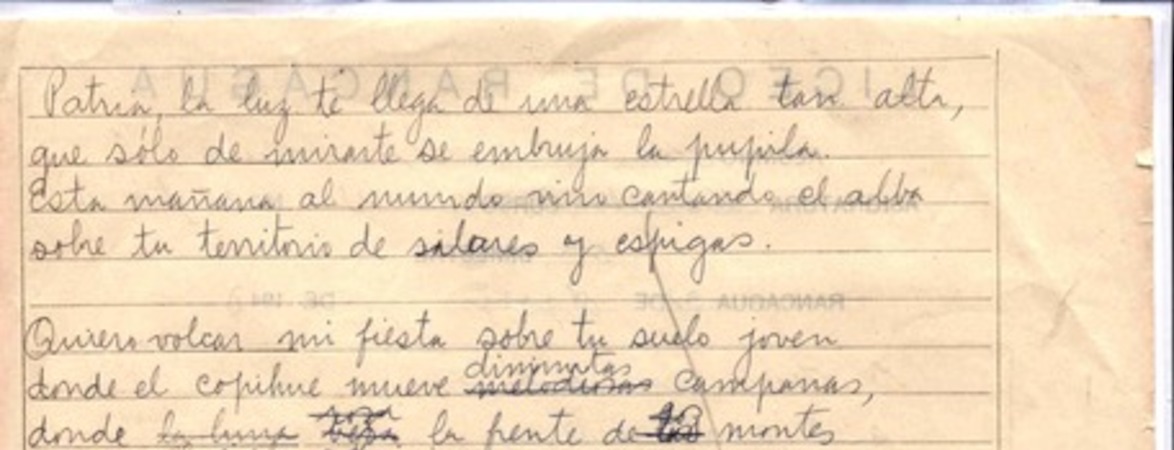 Patria, la luz te llega de una estrella tan alta,
que sólo de mirarte se embruja la pupila.
Esta mañana al mundo vino cantando el alba
sobre tu territorio de salares y espigas.
Quiero volcar mi fiesta sobre tu suelo joven
diminutas
donde el copihue mueve melodiosas campanas,
roza
donde la luna besa la frente de los montes
LICEO DE RANCAGUA
ASIGNATURA
CURSO
RANCAGUA DE DE 194